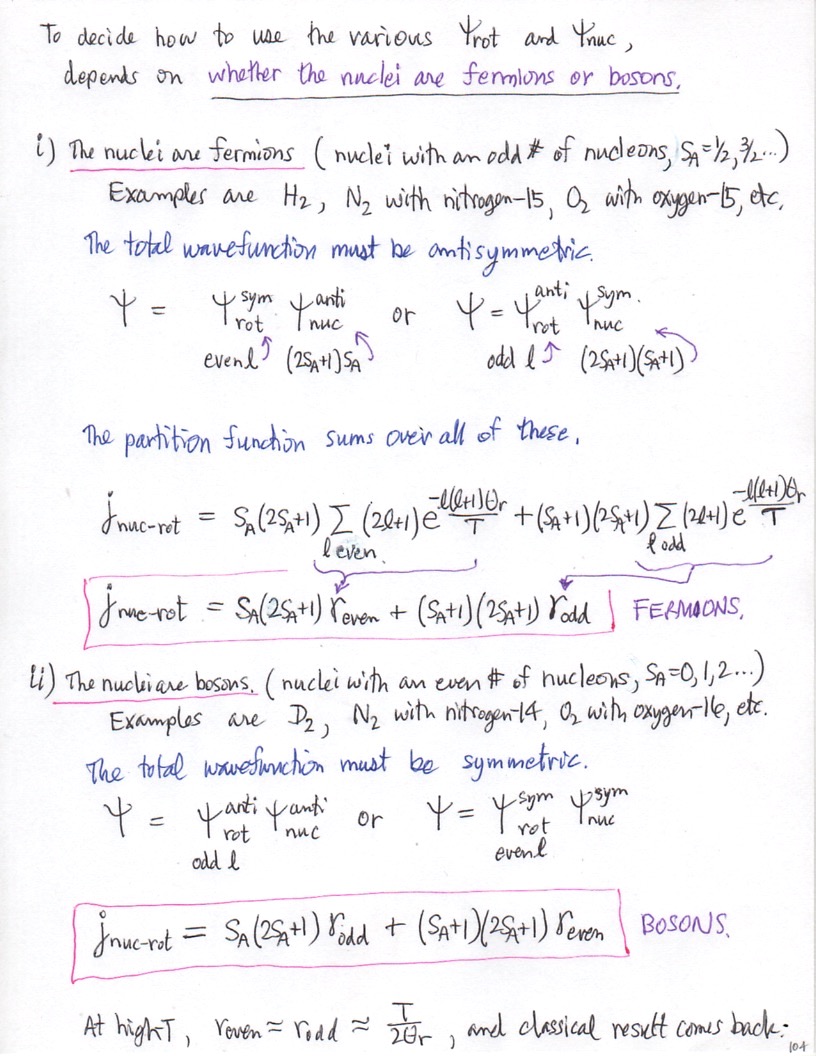 To decide how to use the various Ψrot and Ψnuc,
depends on whether the nuclei are fermions or bosons.
i) The nuclei are fermions (nuclei with an odd # of nucleons, S_A=1/2, 3/2...)
Examples are H₂, N₂ with nitrogen-15, O₂ with oxygen-15, etc.
The total wavefunction must be antisymmetric.
Ψ = Ψ_rot^sym Ψ_nuc^anti or Ψ = Ψ_rot^anti Ψ_nuc^sym.
even l (2S_A+1)S_A odd l (2S_A+1)(S_A+1)
The partition function sums over all of these.
j_nuc-rot = S_A(2S_A+1) Σ_{l even} (2l+1) e^{-l(l+1)θr/T} + (S_A+1)(2S_A+1) Σ_{l odd} (2l+1) e^{-l(l+1)θr/T}
j_nuc-rot = S_A(2S_A+1) r_even + (S_A+1)(2S_A+1) r_odd FERMIONS.
ii) The nuclei are bosons. (nuclei with an even # of nucleons, S_A=0,1,2...)
Examples are D₂, N₂ with nitrogen-14, O₂ with oxygen-16, etc.
The total wavefunction must be symmetric.
Ψ = Ψ_rot^anti Ψ_nuc^anti or Ψ = Ψ_rot^sym Ψ_nuc^sym
odd l even l
j_nuc-rot = S_A(2S_A+1) r_odd + (S_A+1)(2S_A+1) r_even BOSONS.
At high T, r_even ≈ r_odd ≈ T/2θr, and classical result comes back:
104